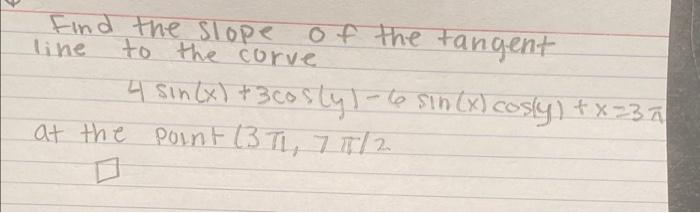 Find the slope of the tangent
line to the curve
4 sin(x) + 3cos(y) - 6 sin(x) cos(y) + x = 3π
at the point (3π, 7π/2